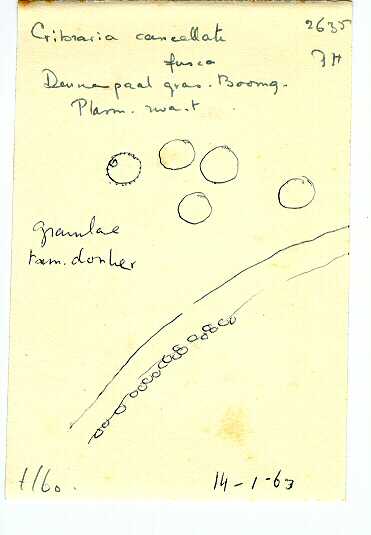 Cribraria cancellata 2635
fusca JH
Dennepaal gras. Boomg.
Plasm. zwart
granulae
tam. donker
14-1-63